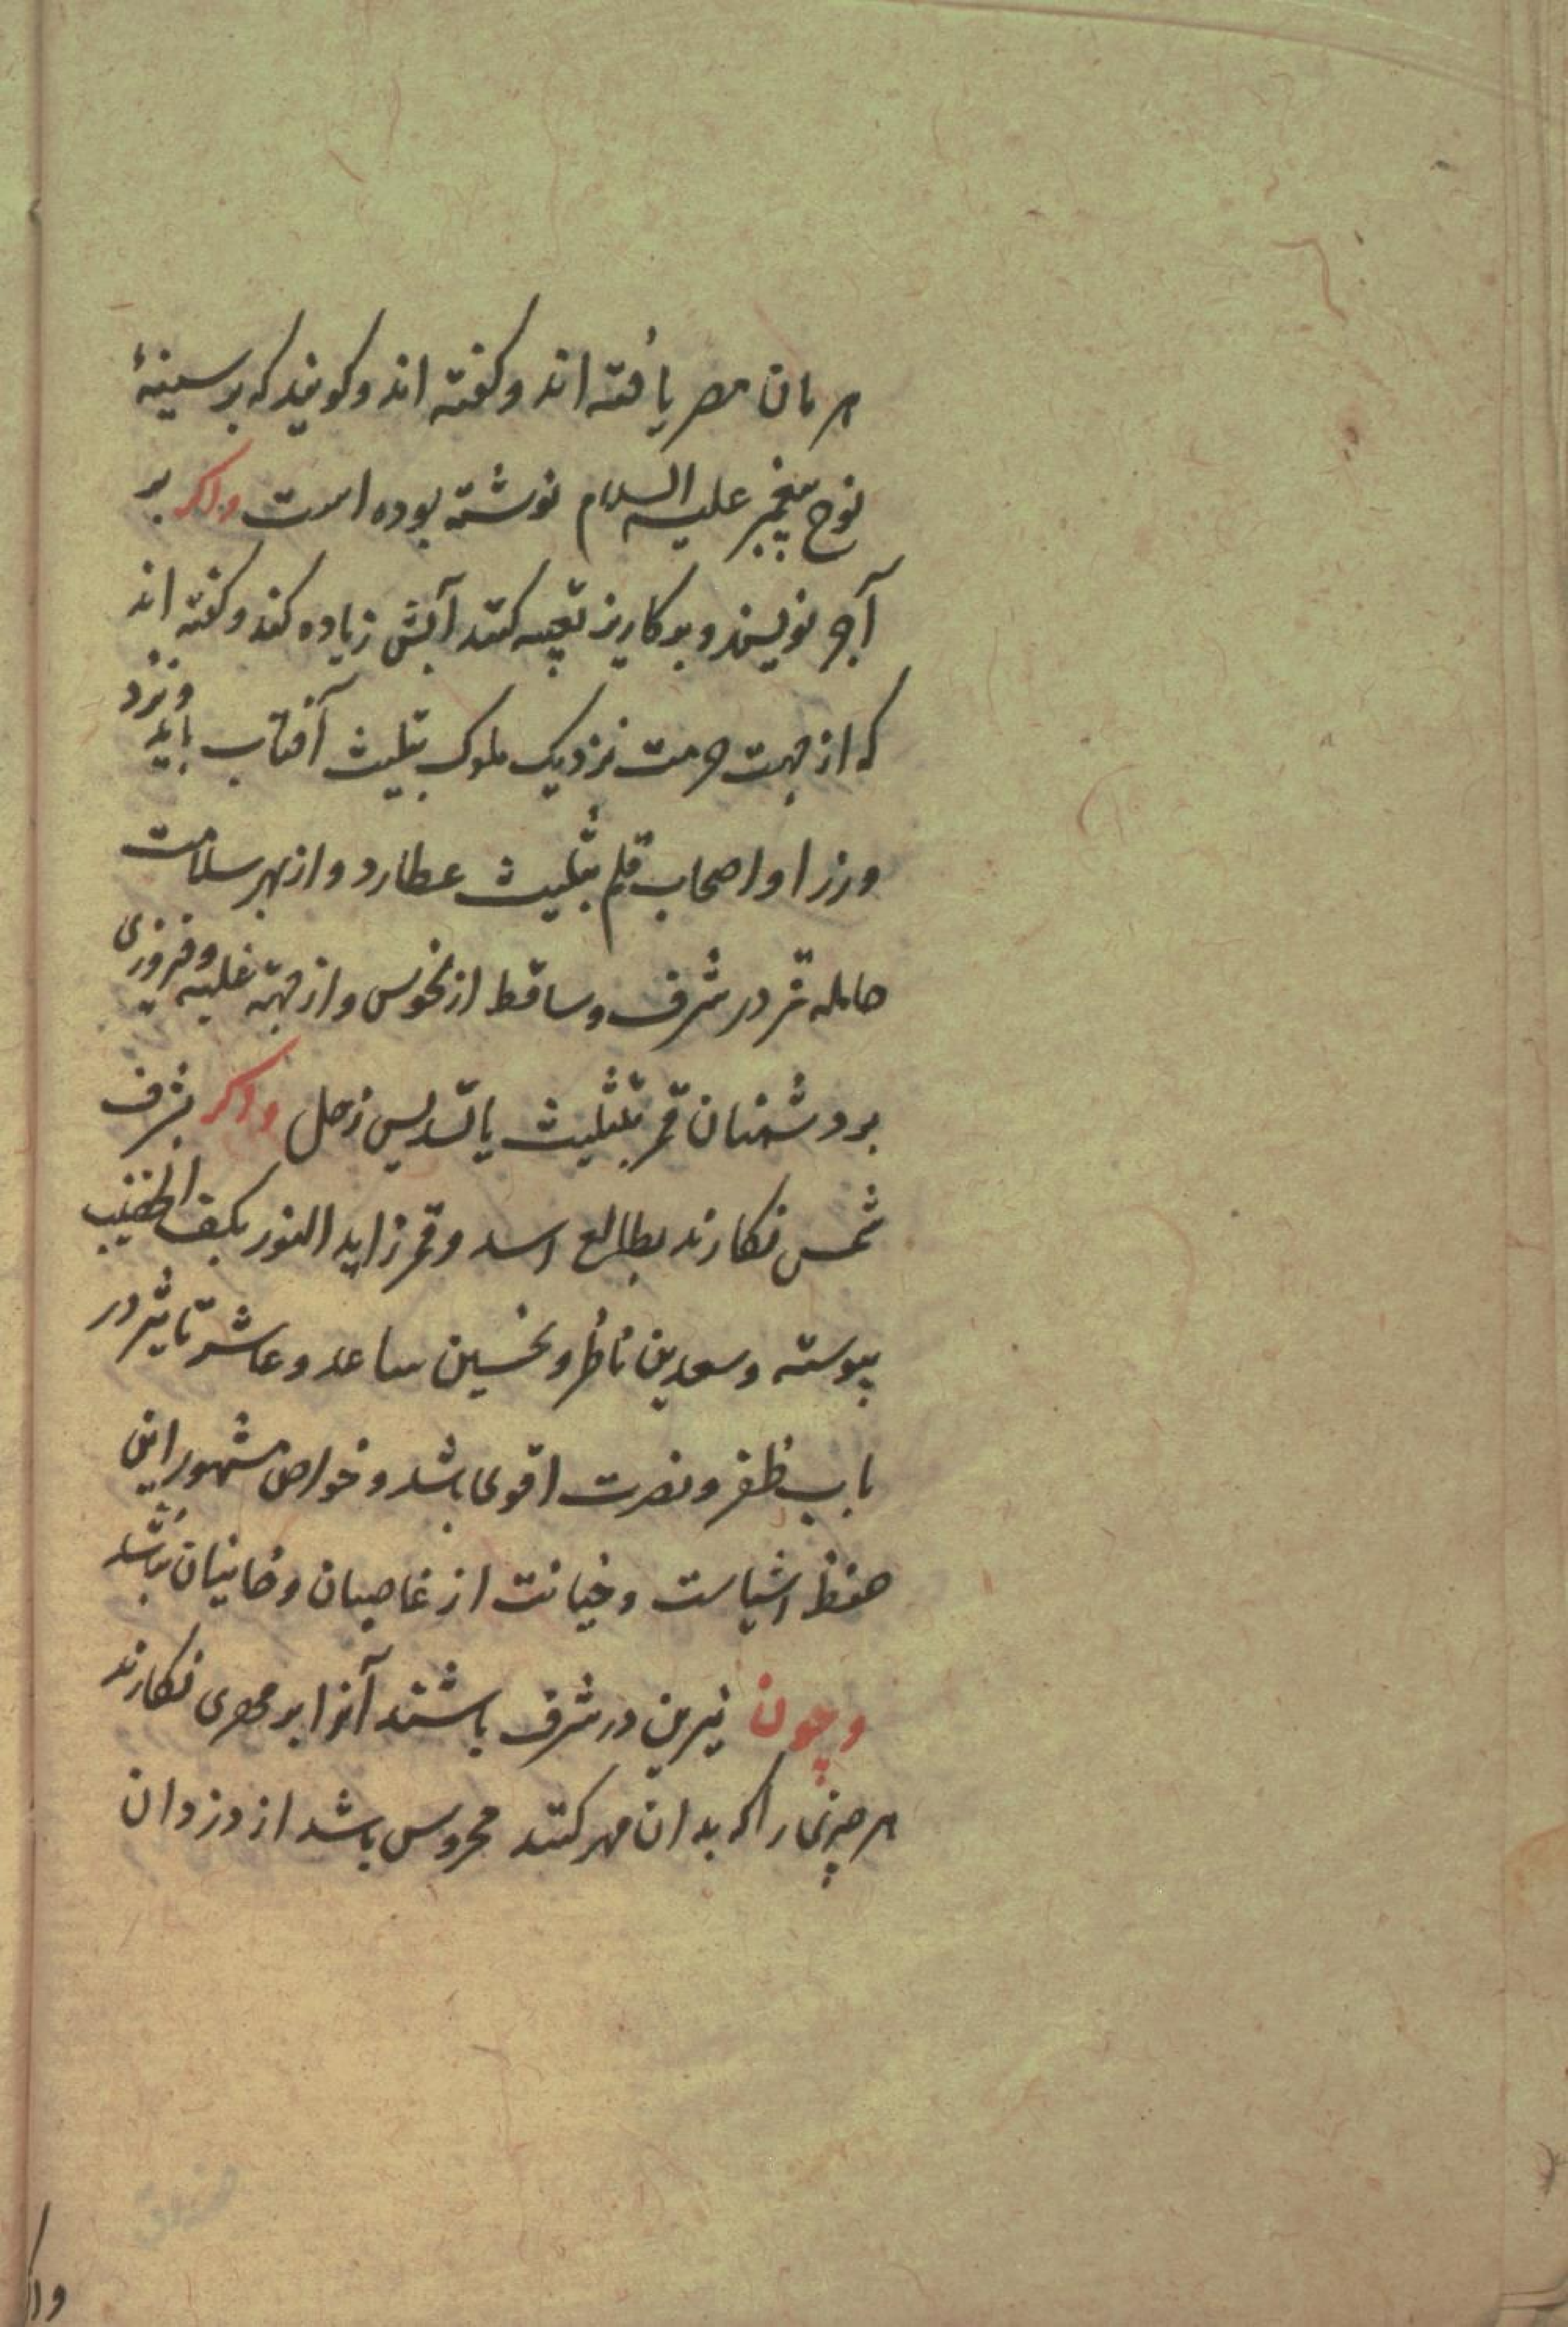 هرمان مصر یافته اند و کفته اند و کویند که بر سینهٔ
نوح پیغمبر علیه السلام نوشته بوده است واکر بر
آجر نویسند و بر کاریز تعبیه کنند آبش زیاده کند و کفته اند
که از جهت حرمت نزدیک ملوک بتثلیث آفتاب باید و نزد
وزرا و اصحاب قلم بتثلیث عطارد و از بهر سلامت
حامله قمر در شرف و ساقط از نحوس و از جهة غلبه و فیروزی
بر دشمنان قمر بتثلیث یا تسدیس زحل واکر بشرف
شمس نکارند بطالع اسد و قمر زاید النور بکف الخضیب
پیوسته و سعدین ناظر و نحسین ساعد و عاشر تاثیر در
باب ظفر و نصرت اقوی باشد و خواص مشهور این
حفظ اشیاست و خیانت از غاصبان و خاینان باشد
وچون نیرین در شرف باشند آنرا بر مهری نکارند
هر چیزی را که بدان مهر کنند محروس باشد از دزدان